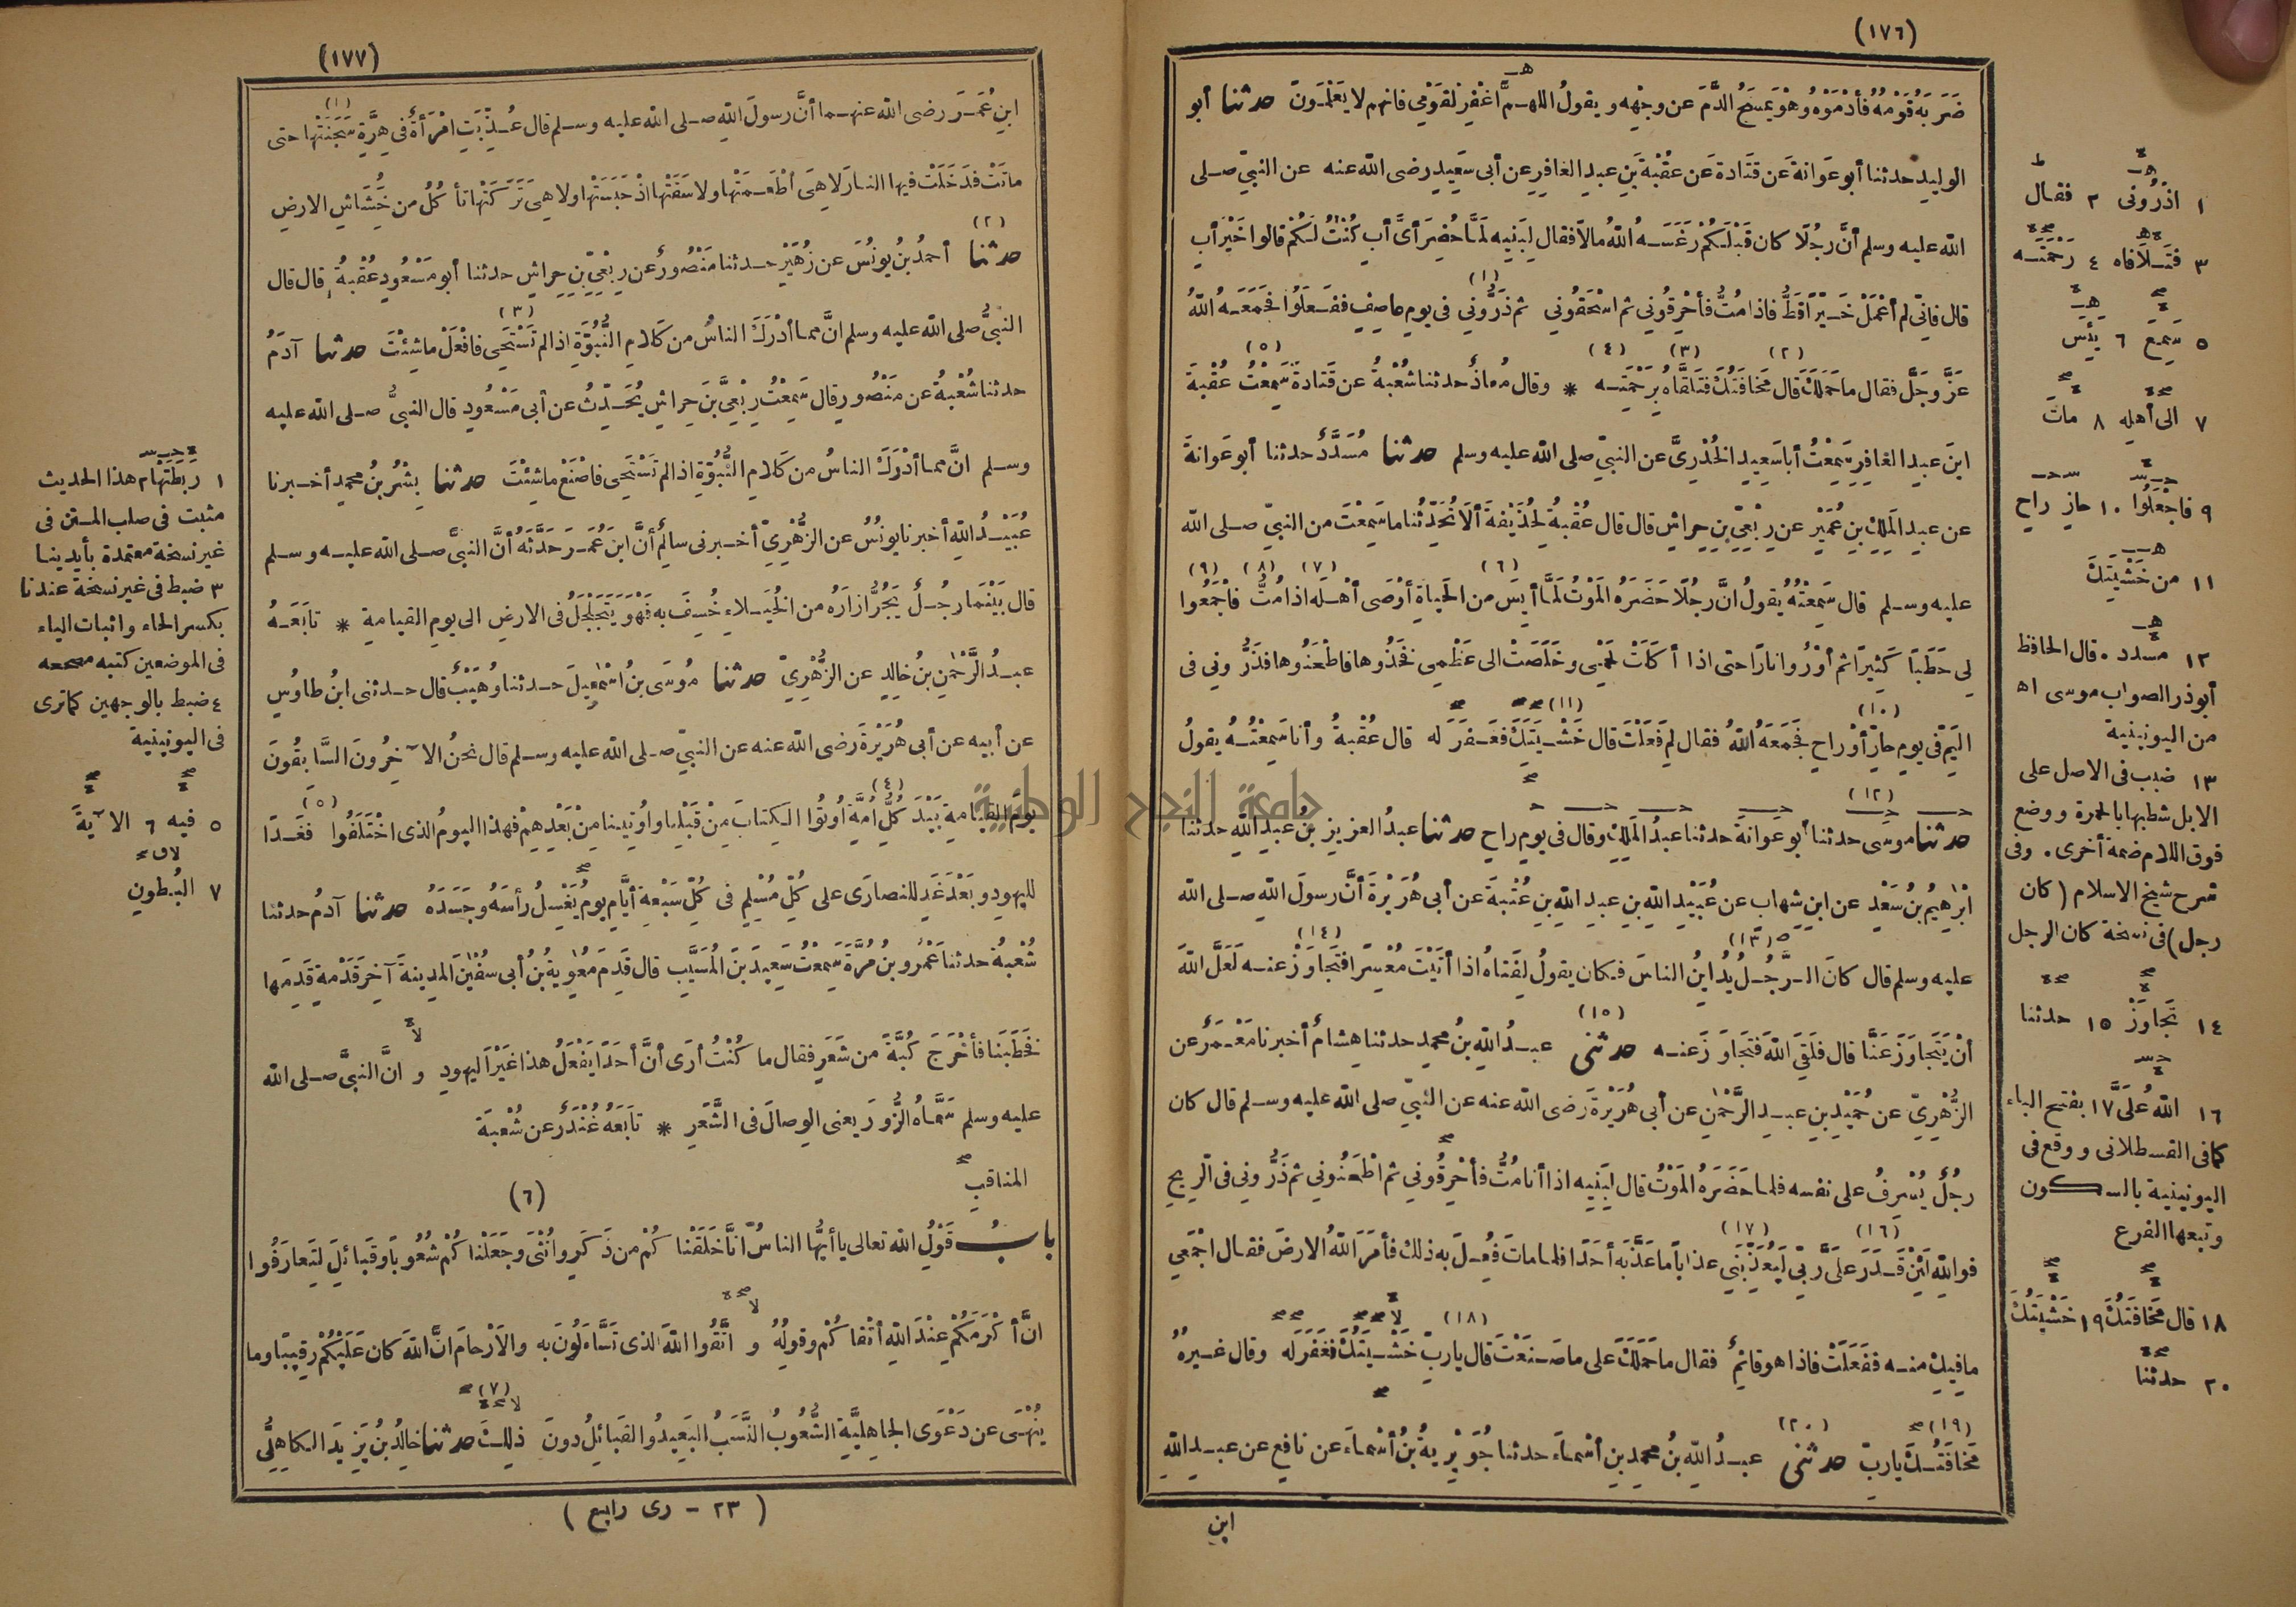 (١٧٦)
ضَرَبَهُ قَوْمُهُ فَأَدْمَوْهُ وهْوَ يَمْسَحُ الدَّمَ عن وجْهِهِ ويقولُ اللهمَّ اغْفِرْ لقَوْمِي فانهم لا يَعْلَمُونَ حدثنا أبو
الوليدِ حدثنا أبو عَوانةَ عن قَتَادةَ عن عُقْبَةَ بنِ عبدِ الغافِرِ عن أبى سَعِيدٍ رضى الله عنه عن النبىّ صلى
الله عليه وسلم أنَّ رجُلًا كان قَبْلَكُمْ رَغَسَهُ اللهُ مالًا فقال لِبَنِيهِ لَمَّا حُضِرَ أىَّ أبٍ كُنْتُ لَكُمْ قالوا خَيْرَ أبٍ
قال فانِّى لم أعْمَلْ خَيْرًا قَطُّ فاذا مُتُّ فأحْرِقُونِى ثم اسْحَقُونِى ثم ذَرُّونِى (١) فى يومٍ عاصِفٍ ففَعَلُوا فجَمَعَهُ اللهُ
عَزَّ وجَلَّ فقال ما حَمَلَكَ قال (٢) مَخافَتُكَ فتَلَقَّاهُ (٣) بِرَحْمَتِهِ (٤) * وقال مُعاذٌ حدثنا شُعْبةُ عن قَتَادةَ سَمِعْتُ (٥) عُقْبةَ
ابنَ عبدِ الغافِرِ سَمِعْتُ أبا سَعِيدٍ الخُدْرِىَّ عن النبىّ صلى الله عليه وسلم حدثنا مُسَدَّدٌ حدثنا أبو عَوانةَ
عن عبدِ المَلِكِ بنِ عُمَيْرٍ عن رِبْعِىِّ بنِ حِراشٍ قال قال عُقْبةُ لحُذَيْفةَ ألَا تُحَدِّثُنا ما سَمِعْتَ من النبىّ صلى الله
عليه وسلم قال سَمِعْتُهُ يقولُ انَّ رجُلًا حَضَرَهُ المَوْتُ لَمَّا أيِسَ (٦) من الحَياةِ أوْصَى أهْلَه (٧) اذا مُتُّ (٨) فاجْمَعُوا (٩)
لِى حَطَبًا كَثِيرًا ثم أوْرُوا نارًا حتى اذا أكَلَتْ لَحْمِى وخَلَصَتْ الى عَظْمِى فخُذُوها فاطْحَنُوها فذَرُّونِى فى
اليَمِّ فى يومٍ حارٍّ (١٠) أوْ راحٍ فجَمَعَهُ اللهُ فقال لِمَ فَعَلْتَ قال خَشْيَتَكَ (١١) فغَفَرَ له قال عُقْبةُ وأنا سَمِعْتُهُ يقولُ
حدثنا موسَى (١٢) حدثنا أبو عَوانةَ حدثنا عبدُ المَلِكِ وقال فى يومٍ راحٍ حدثنا عبدُ العزيزِ بنُ عبدِ اللهِ حدثنا
ابْرٰهِيمُ بنُ سَعْدٍ عن ابنِ شِهابٍ عن عُبَيْدِ اللهِ بنِ عبدِ اللهِ بنِ عُتْبةَ عن أبى هُرَيْرةَ أنَّ رسولَ اللهِ صلى الله
عليه وسلم قال كانَ الرَّجُلُ (١٣) يُدايِنُ الناسَ فكان يقولُ لِفَتاهُ اذا أتَيْتَ مُعْسِرًا فتَجاوَزْ (١٤) عنه لَعَلَّ اللهَ
أنْ يَتَجاوَزَ عَنَّا قال فلَقِىَ اللهَ فتَجاوَزَ عنه حدثنى (١٥) عبدُ اللهِ بنُ محمدٍ حدثنا هِشامٌ أخبرنا مَعْمَرٌ عن
الزُّهْرِىِّ عن حُمَيْدِ بنِ عبدِ الرَّحْمٰنِ عن أبى هُرَيْرةَ رضى الله عنه عن النبىّ صلى الله عليه وسلم قال كان
رجُلٌ يُسْرِفُ على نفسِه فلما حَضَرَهُ المَوْتُ قال لِبَنِيهِ اذا أنا مُتُّ فأحْرِقُونِى ثم اطْحَنُونِى ثم ذَرُّونِى فى الرِّيحِ
فواللهِ لَئِنْ قَدَرَ عَلَىَّ (١٦) رَبِّى لَيُعَذِّبَنِّى (١٧) عذابًا ما عَذَّبَهُ أحَدًا فلما ماتَ فُعِلَ به ذلك فأمَرَ اللهُ الارضَ فقال اجْمَعِى
ما فِيكِ منه ففَعَلَتْ فاذا هو قائِمٌ فقال ما حَمَلَكَ على ما صَنَعْتَ قال (١٨) يارَبِّ خَشْيَتُكَ فغَفَرَ له وقال غيرُهُ
مَخافَتُكَ (١٩) يارَبِّ حدثنى (٢٠) عبدُ اللهِ بنُ محمدِ بنِ أسْماءَ حدثنا جُوَيْرِيةُ بنُ أسْماءَ عن نافِعٍ عن عبدِ اللهِ
ابنِ
١ اذْرُونى ٢ فقال
٣ فَتَلَافاه ٤ رَحْمَتَه
٥ سَمِعَ ٦ يَئِسَ
٧ الى أهلِه ٨ ماتَ
٩ فاجْعَلُوا ١٠ حازٍ راحٍ
١١ من خَشْيَتِكَ
١٢ مسدد . قال الحافظ
أبوذر الصواب موسى اه
من اليونينية
١٣ ضبب فى الاصل على
الابل شطبها بالحمرة ووضع
فوق اللام ضمة أخرى . وفى
شرح شيخ الاسلام (كان
رجل) فى نسخة كان الرجل
١٤ تَجاوَزْ ١٥ حدثنا
١٦ اللهُ عَلَىَّ ١٧ بفتح الباء
كما فى القسطلانى ووقع فى
اليونينية بالسكون
وتبعها الفرع
١٨ قال مَخافَتَكَ ١٩ خَشْيَتُكَ
٢٠ حدثنا
(١٧٧)
ابنِ عُمَرَ رضى الله عنهما أنَّ رسولَ اللهِ صلى الله عليه وسلم قال عُذِّبَتِ امْرَأةٌ فى هِرَّةٍ سَجَنَتْها (١) حتى
ماتَتْ فدَخَلَتْ فيها النارَ لا هِىَ أطْعَمَتْها ولا سَقَتْها اذْ حَبَسَتْها ولا هِىَ تَرَكَتْها تأكُلُ من خَشَاشِ الارضِ
حدثنا أحمدُ بنُ يونُسَ عن زُهَيْرٍ حدثنا مَنْصُورٌ عن رِبْعِىِّ بنِ حِراشٍ حدثنا أبو مَسْعُودٍ عُقْبةُ (٢) قال قال
النبىُّ صلى الله عليه وسلم انَّ مما أدْرَكَ الناسُ من كَلامِ النُّبُوَّةِ اذا لم تَسْتَحْىِ (٣) فافْعَلْ ما شِئْتَ حدثنا آدَمُ
حدثنا شُعْبةُ عن مَنْصُورٍ قال سَمِعْتُ رِبْعِىَّ بنَ حِراشٍ يُحَدِّثُ عن أبى مَسْعُودٍ قال النبىُّ صلى الله عليه
وسلم انَّ مما أدْرَكَ الناسُ من كَلامِ النُّبُوَّةِ اذا لم تَسْتَحْىِ فاصْنَعْ ما شِئْتَ حدثنا بِشْرُ بنُ محمدٍ أخبرنا
عُبَيْدُ اللهِ أخبرنا يونُسُ عن الزُّهْرِىِّ أخبرنى سالِمٌ أنَّ ابنَ عُمَرَ حَدَّثَهُ أنَّ النبىَّ صلى الله عليه وسلم
قال بَيْنَما رجُلٌ يَجُرُّ ازارَهُ من الخُيَلاءِ خُسِفَ به فَهْوَ يَتَجَلْجَلُ فى الارضِ الى يومِ القيامةِ * تابَعَهُ
عبدُ الرَّحْمٰنِ بنُ خالِدٍ عن الزُّهْرِىِّ حدثنا مُوسَى بنُ اسْمٰعِيلَ حدثنا وُهَيْبٌ قال حدثنى ابنُ طاوُسٍ
عن أبيه عن أبى هُرَيْرةَ رضى الله عنه عن النبىّ صلى الله عليه وسلم قال نحنُ الآخِرُونَ السَّابِقُونَ
يومَ القيامةِ بَيْدَ كُلُّ أُمَّةٍ (٤) أُوتُوا الكِتابَ مِنْ قَبْلِنا وأُوتِينا مِنْ بَعْدِهِمْ فهذا اليومُ الذى اخْتَلَفُوا (٥) فغَدًا
لليهودِ وبَعْدَ غَدٍ للنصارَى على كُلِّ مُسْلِمٍ فى كُلِّ سَبْعةِ أيَّامٍ يومٌ يَغْسِلُ رأسَهُ وجَسَدَهُ حدثنا آدمُ حدثنا
شُعْبةُ حدثنا عَمْرُو بنُ مُرَّةَ سَمِعْتُ سَعِيدَ بنَ المُسَيَّبِ قال قَدِمَ مُعٰوِيةُ بنُ أبى سُفْيٰنَ المدينةَ آخِرَ قَدْمةٍ قَدِمَها
فخَطَبَنا فأخْرَجَ كُبَّةً من شَعَرٍ فقال ما كُنْتُ أرَى أنَّ أحَدًا يَفْعَلُ هذا غَيْرَ اليهودِ وانَّ النبىَّ صلى الله
عليه وسلم سَمَّاهُ الزُّورَ يعنى الوِصالَ فى الشَّعَرِ * تابَعَهُ غُنْدَرٌ عن شُعْبةَ
المناقبِ
(٦)
بابُ قَوْلُ اللهِ تعالى يا أيُّها الناسُ انَّا خَلَقْناكُمْ من ذَكَرٍ وأنْثَى وجَعَلْناكُمْ شُعُوبًا وقَبائِلَ لِتَعارَفُوا
انَّ أكْرَمَكُمْ عِنْدَ اللهِ أتْقاكُمْ وقولُهُ واتَّقُوا اللهَ الذى تَسَّاءَلُونَ به والارْحامَ انَّ اللهَ كان عَلَيْكُمْ رقِيبًا وما
يُنْهَى عن دَعْوَى الجاهِلِيَّةِ الشُّعُوبُ النَّسَبُ البَعِيدُ والقَبائِلُ دونَ ذلِكَ (٧) حدثنا خالِدُ بنُ يَزِيدَ الكاهِلِىُّ
(٢٣ - رى رابع)
١ رَبطتْها م هذا الحديث
مثبت فى صلب المتن فى
غير نسخة معتمدة بأيدينا
٣ ضبط فى غير نسخة عندنا
بكسر الحاء واثبات الياء
فى الموضعين كتبه مصححه
٤ ضبط بالوجهين كما ترى
فى اليونينية
٥ فيه ٦ الآيةَ
٧ البُطون
جامعة النجاح الوطنية